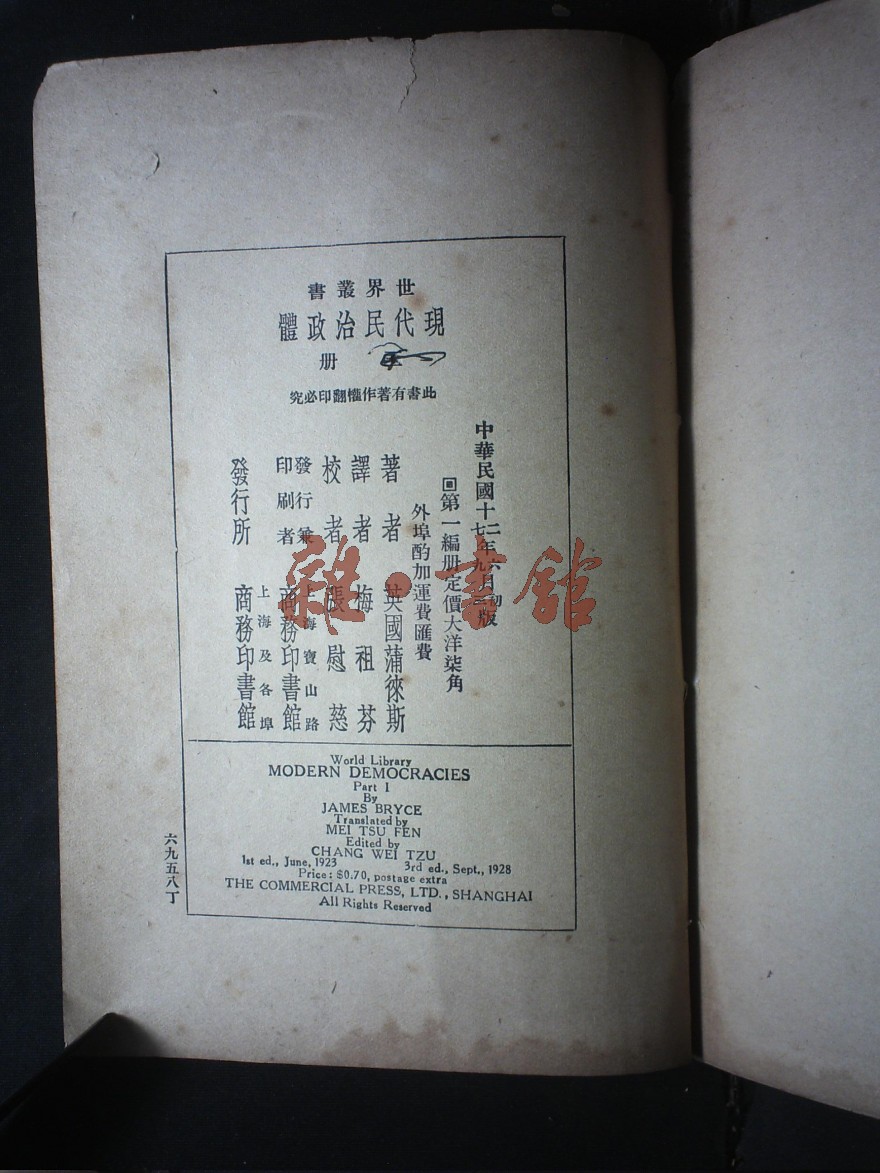 世界叢書
現代民治政體
册
此書有著作權翻印必究
中華民國十二年六月初版
十七年九月三版
回第一編册定價大洋柒角
外埠酌加運費匯費
著者 英國蒲徠斯
譯者 梅祖芬
校者 張慰慈
發行兼印刷者 上海寶山路 商務印書館
發行所 上海及各埠 商務印書館
World Library
MODERN DEMOCRACIES
Part I
By
JAMES BRYCE
Translated by
MEI TSU FEN
Edited by
CHANG WEI TZU
1st ed., June, 1923 3rd ed., Sept., 1928
Price: $0.70, postage extra
THE COMMERCIAL PRESS, LTD., SHANGHAI
All Rights Reserved
六九五八丁
雜·書館